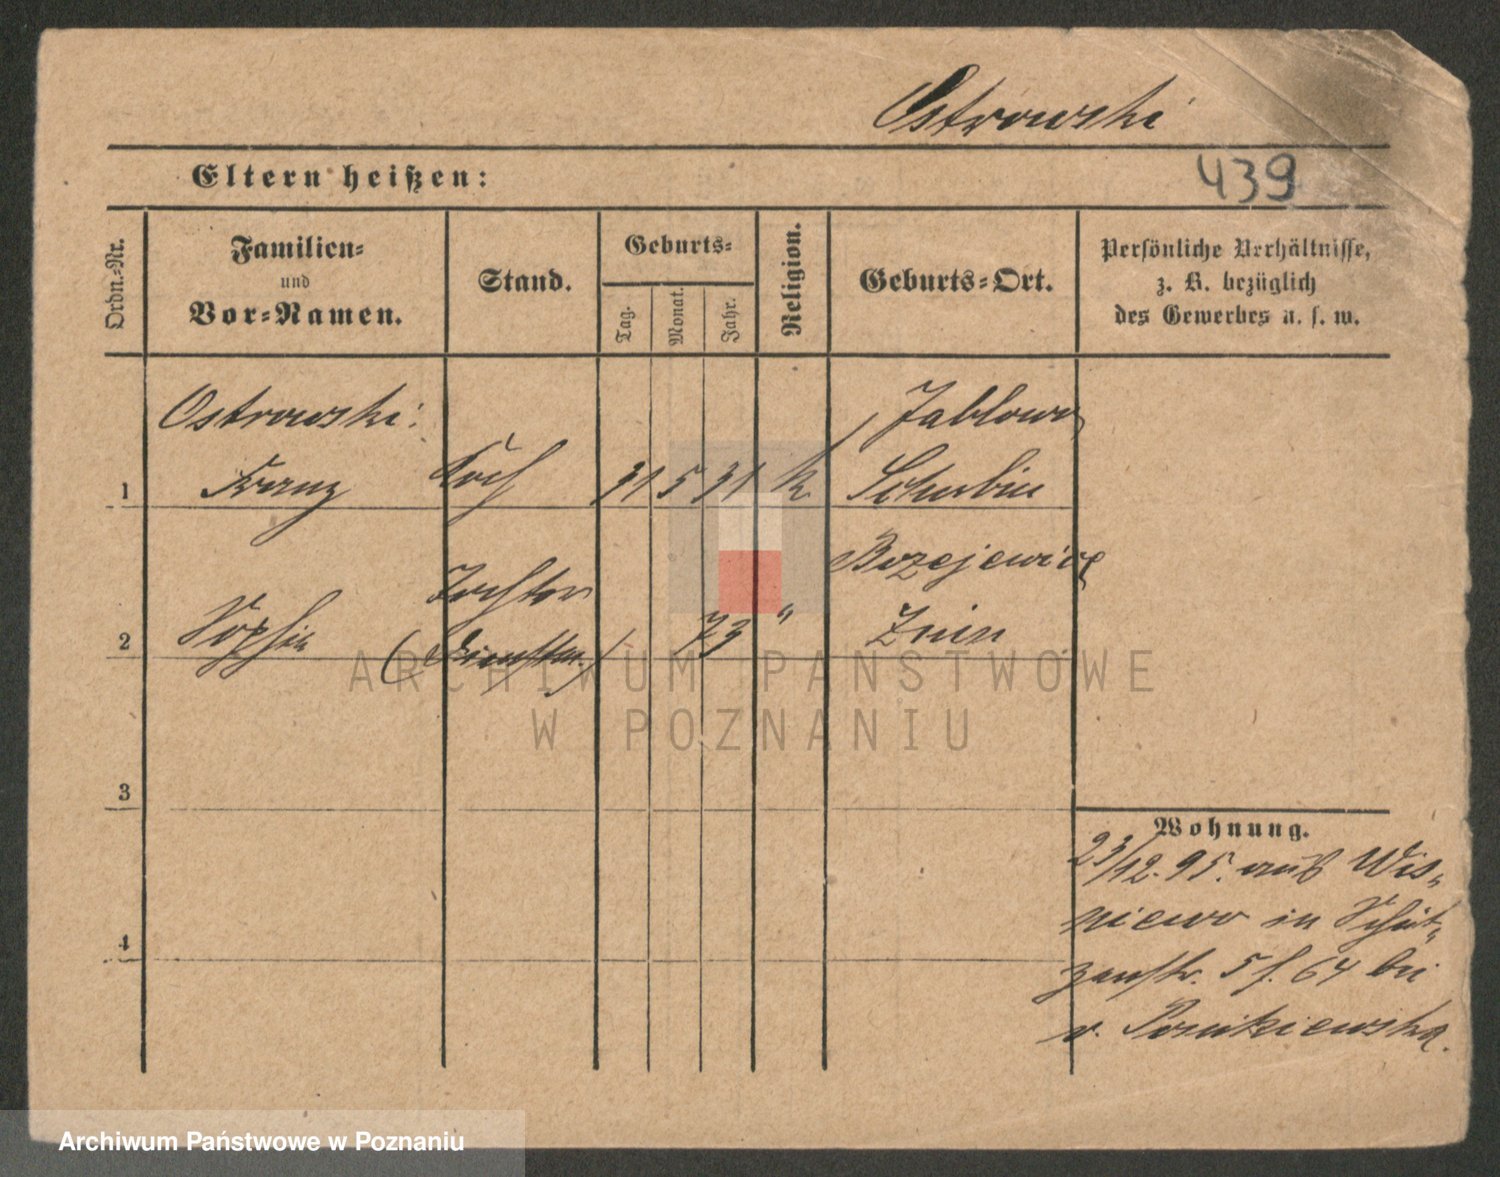 Ostrowski
Eltern heißen:
439
Ordn.-Nr.
Familien-
und
Vor-Namen.
Stand.
Geburts-
Tag.
Monat.
Jahr.
Religion.
Geburts-Ort.
Persönliche Verhältnisse,
z. B. bezüglich
des Gewerbes u. s. w.
Ostrowski: Jablowo
1 Franz Koch 31 5 31 k. Schubin
Tochter Bozejewice
2 Sophie 73 " Znin
3
4
Wohnung.
23/12. 95. aus Wis-
niewo in Schüt-
zenstr. 5 f. 64 bei
v. Ponikiewska.
ARCHIWUM PAŃSTWOWE
W POZNANIU
Archiwum Państwowe w Poznaniu